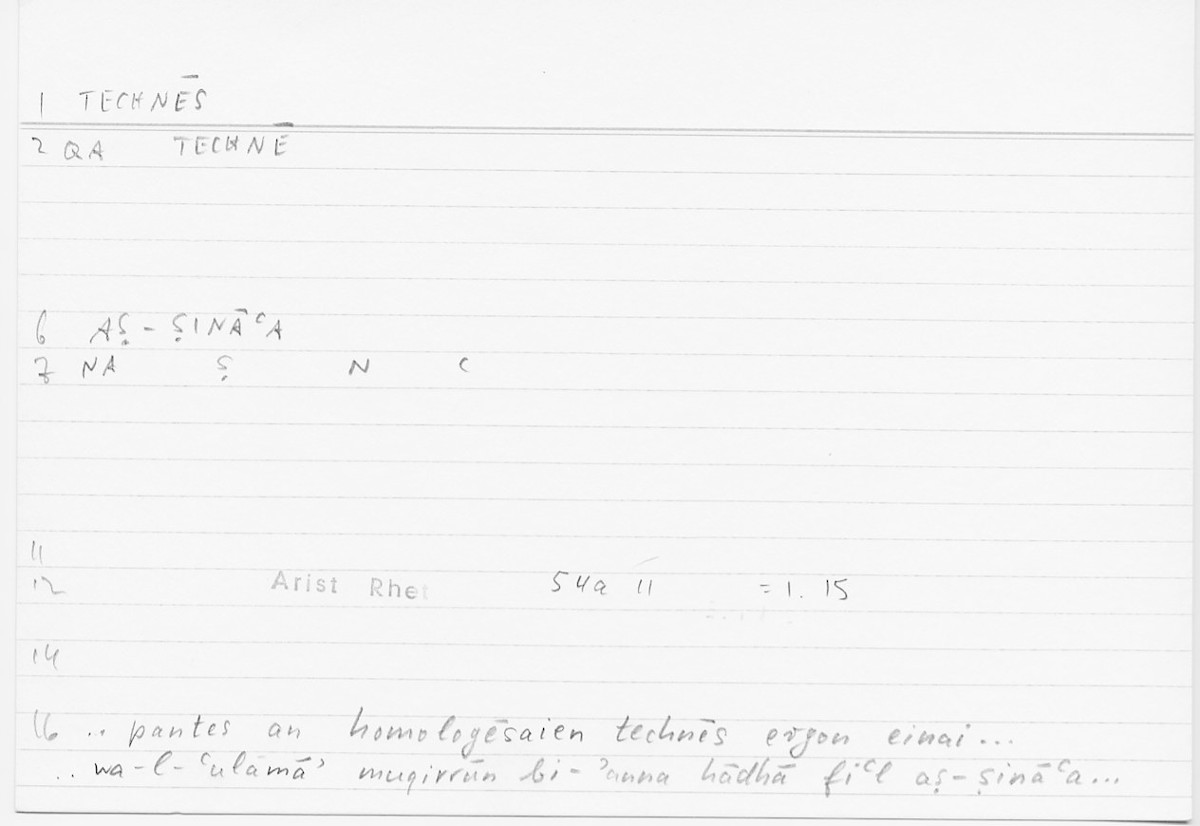 1 TECHNĒS
2 QA TECHNĒ
6 AṢ-ṢINĀʿA
7 NA Ṣ N ʿ
11
12 Arist Rhet 54a 11 =1. 15
14
16 .. pantes an homologēsaien technēs ergon einai...
.. wa-l-ʿulamāʾ muqirrūn bi-ʾanna hādhā fiʿl aṣ-ṣināʿa...